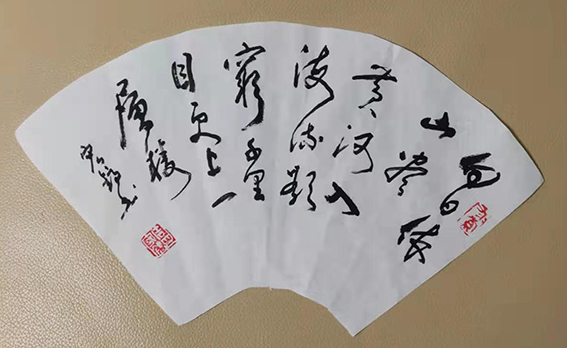 白日依
山盡
黄河入
海流欲
窮千里
目更上一
層樓